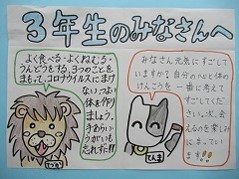 3年生のみなさんへ
よく食べる・よくねむる・
うんどうをする。3つのことを
まもって、コロナウイルスにまけ
ないつよい
体を作り
ましょう。
手あらい
うがいも
忘れずに!!
みなさん元気にすごして
いますか?自分の心と体の
けんこうを一番に考えて
すごしてくださ
い。次、会
えるのを楽しみ
にまってい
ます!!